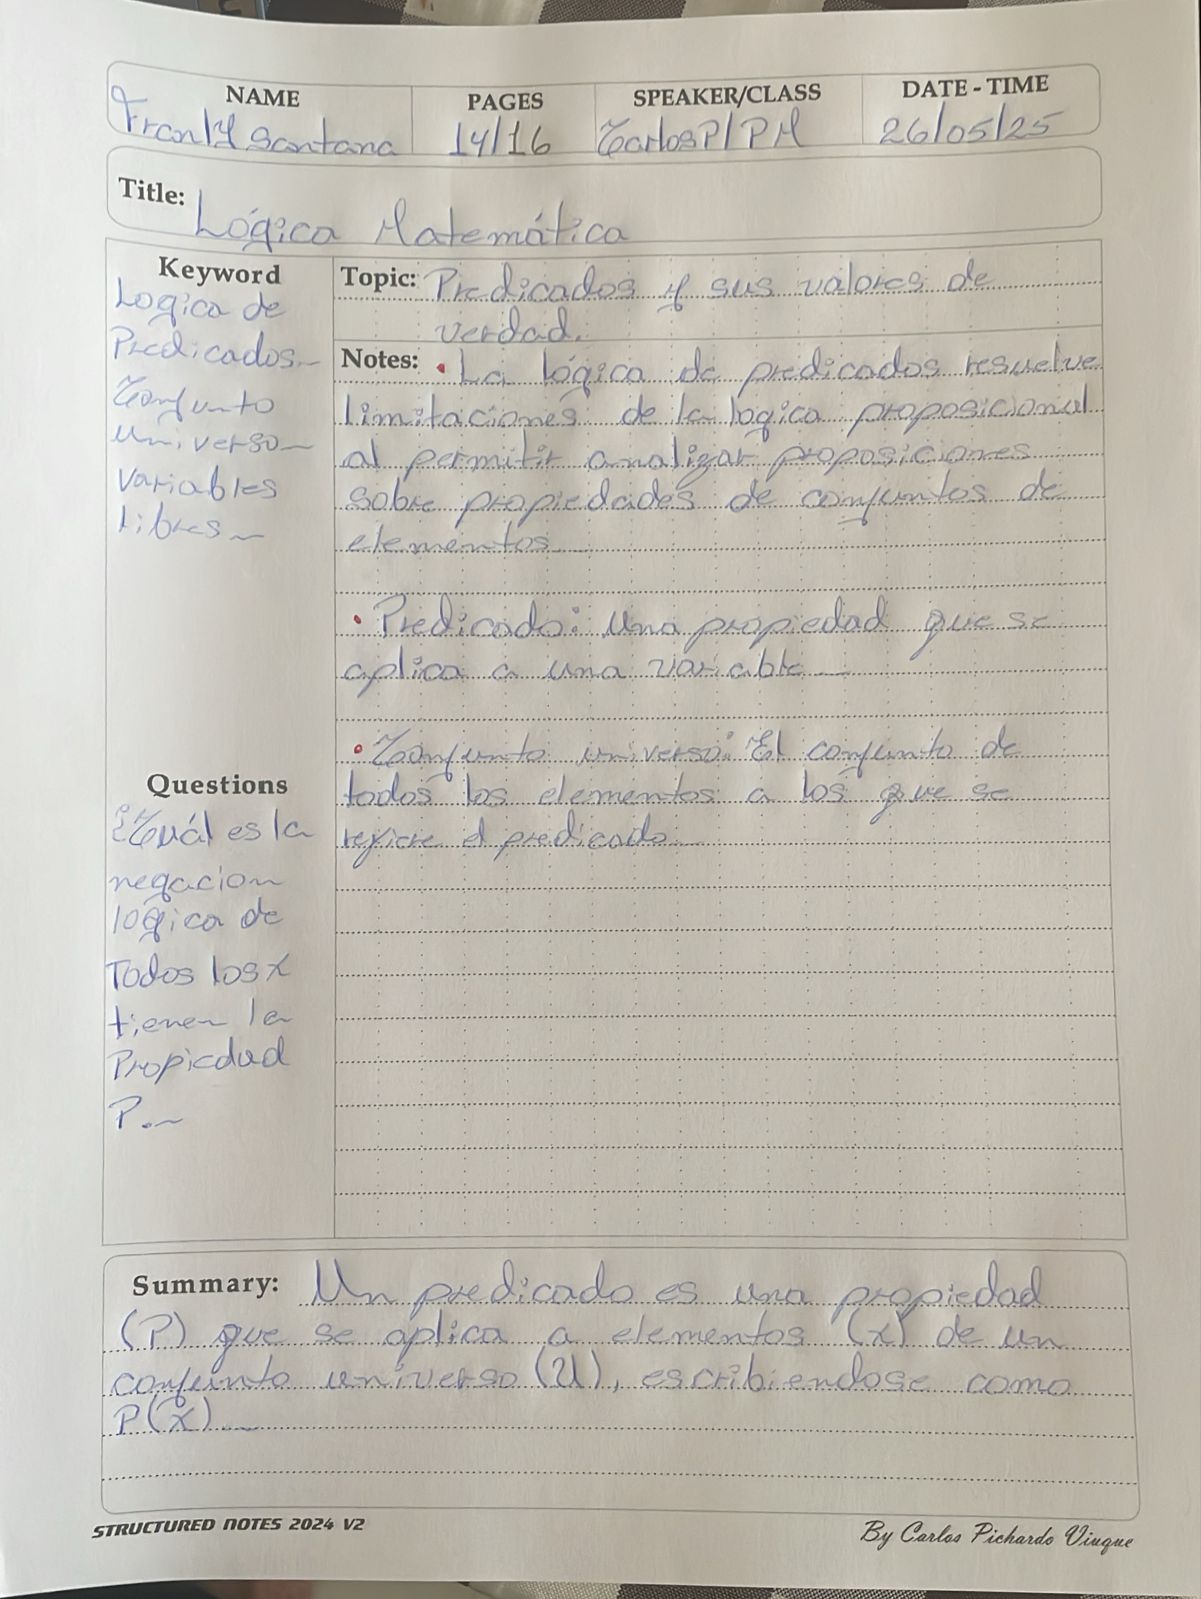 NAME PAGES SPEAKER/CLASS DATE - TIME
Franly Santana 14/16 CarlosP/PM 26/05/25
Title: Lógica Matemática
Keyword
Logica de
Predicados
Conjunto
universo
variables
libres
Topic: Predicados y sus valores de
verdad.
Notes: • La lógica de predicados resuelve
limitaciones de la logica proposicional
al permitir analizar proposiciones
sobre propiedades de conjuntos de
elementos
• Predicado: Una propiedad que se
aplica a una variable
• Conjunto universo: El conjunto de
todos los elementos a los que se
refiere el predicado
Questions
¿Cuál es la
negacion
lógica de
Todos los x
tienen la
Propiedad
P.
Summary: Un predicado es una propiedad
(P) que se aplica a elementos (x) de un
conjunto universo (U), escribiendose como
P(x)
STRUCTURED NOTES 2024 V2
By Carlos Pichardo Viuque